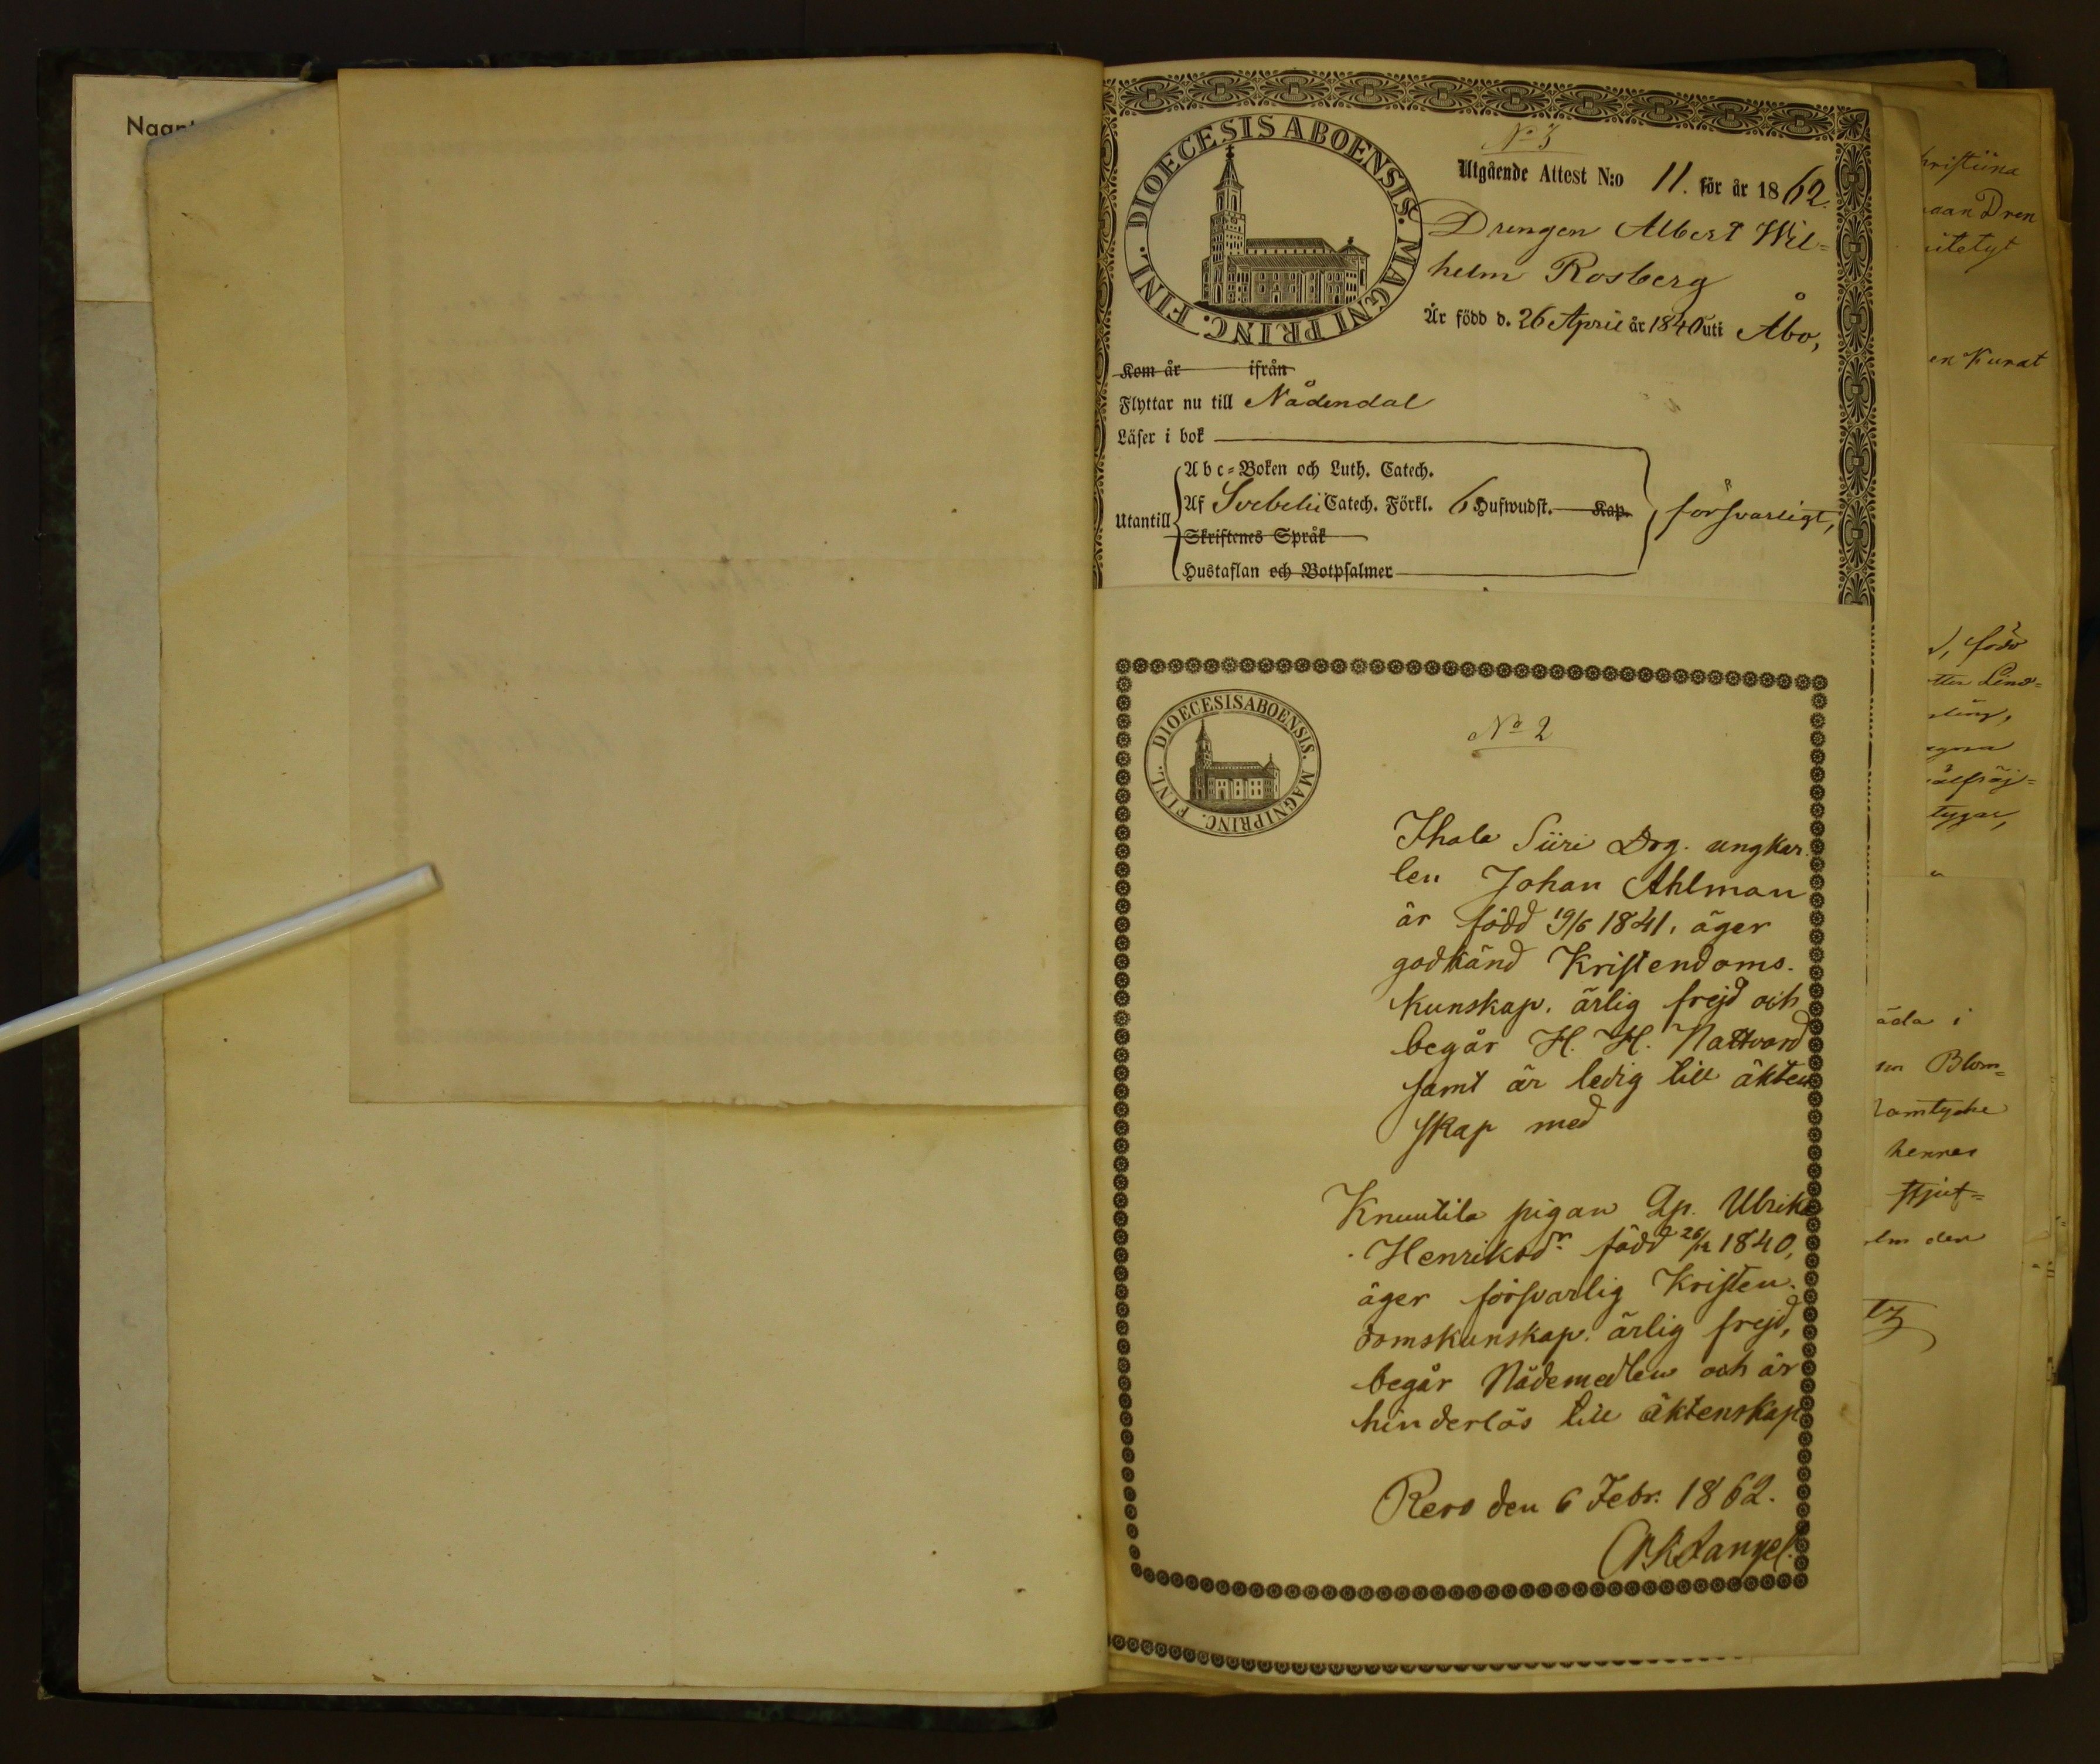 Naant
DIOECESIS ABOENSIS. MAGNI PRINC. FINL.
No 3
Utgående Attest N:o 11. för år 1862.
Drengen Albert Wil=
helm Rosberg
Är född d. 26 April år 1840 uti Åbo,
Kom år ifrån
Flyttar nu till Nådendal
Läser i bok
Abc=Boken och Luth. Catech.
Utantill Af Svebelii Catech. Förkl. 6 Hufwudst. Kap. försvarligt,
Skriftenes Språk
Hustaflan och Botpsalmer
DIOECESIS ABOENSIS. MAGNI PRINC. FINL.
No 2
Ihala Siiri Drg. ungkar.
len Johan Ahlman
är född 19/6 1841, äger
godkänd Kristendoms.
kunskap, ärlig frejd och
begår H. H. Nattvard
samt är ledig till äkten
skap med
Knuutila pigan Ulrika
Henriksdr född 26/12 1840,
äger försvarlig Kristen.
domskunskap, ärlig frejd,
begår Nådemedlen och är
hinderlös till äktenskap
Reso den 6 Febr. 1862.
hristiina
aan Dren
utetyt
en Kunat
), född
tter Lind=
tygar,
äda i
Blom=
Samtycke
hennes
den